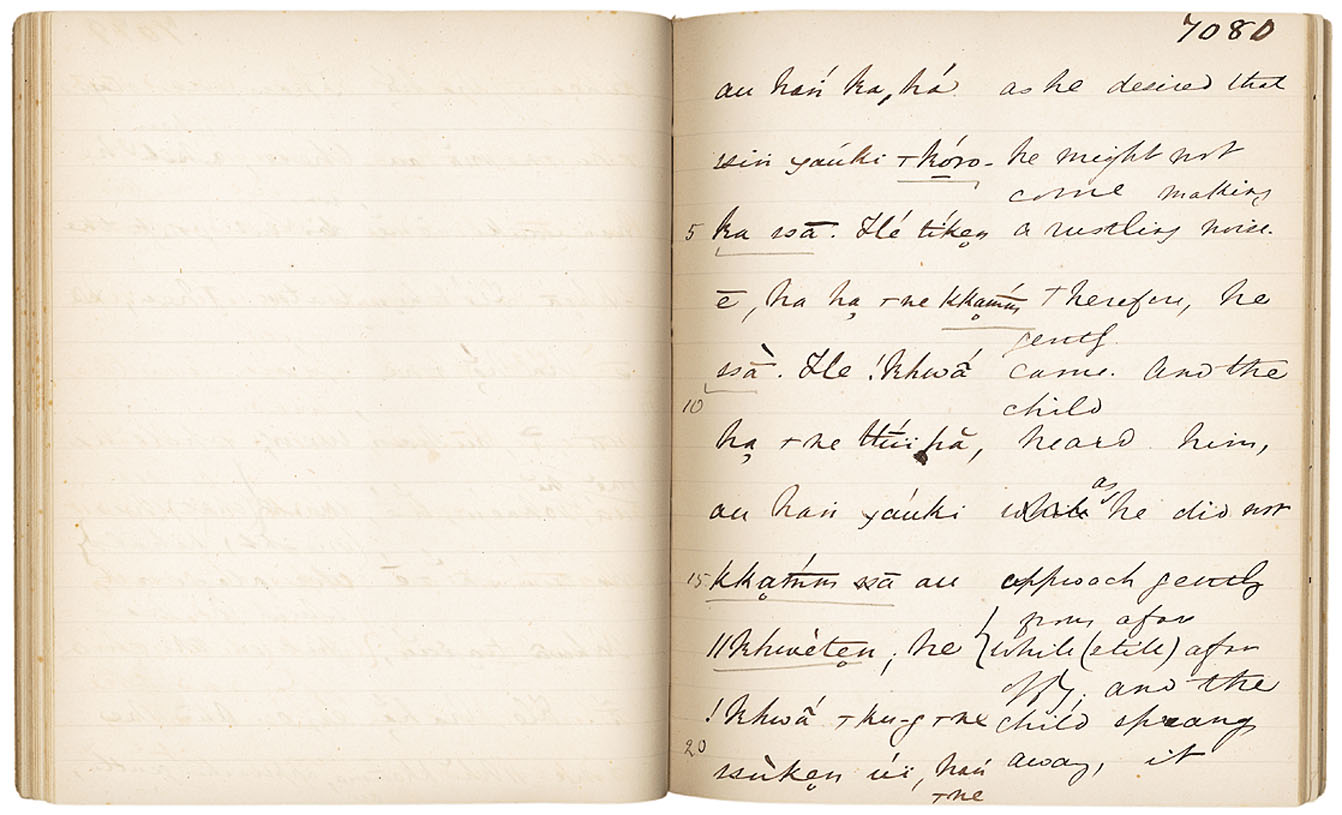 7080
au hań ka, há as he desired that
ssin yaúki +kóro- he might not
come making
5 ka ssā. Hé tíkẹn a rustling noise.
ē, ha hạ +ne kkạmḿ Therefore, he
gently
ssā̀. He !khwā́ came. And the
10 child
hạ +ne ttúï hā, heard him,
as
au hań yaúki while he did not
15 kkạmḿ ssā au approach gently
from afar
||khwétẹn, he while (still) afar
off; and the
!khwā́ +ku-g +ne child sprang
20 away, it
ssùkẹn úï, hań
+ne